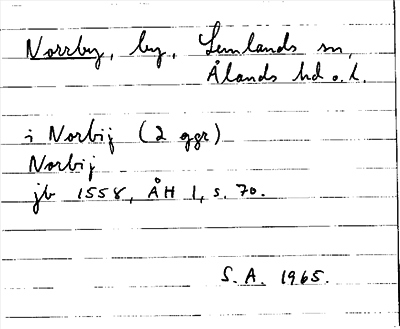 Norrby, by, Lemlands sn,
Ålands hd o. l.
i Norbij (2 ggr)
Norbij
jb 1558, ÅH 1, s. 70.
S. A. 1965.